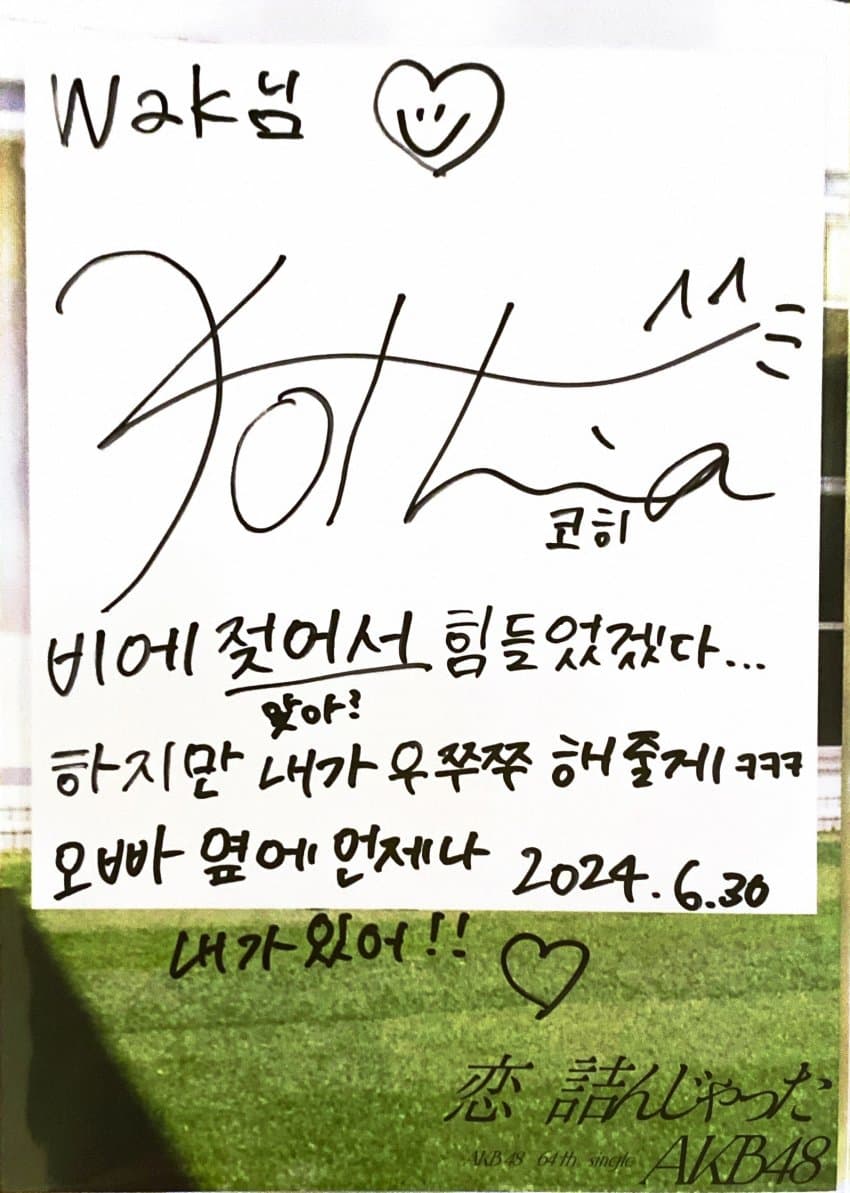 Wak님
코히
비에 젖어서 힘들었겠다...
맞아?
하지만 내가 우쭈쭈 해줄게ㅋㅋㅋ
오빠 옆에 언제나 2024.6.30
내가 있어!!
恋 詰んじゃった
AKB48 64th single AKB48